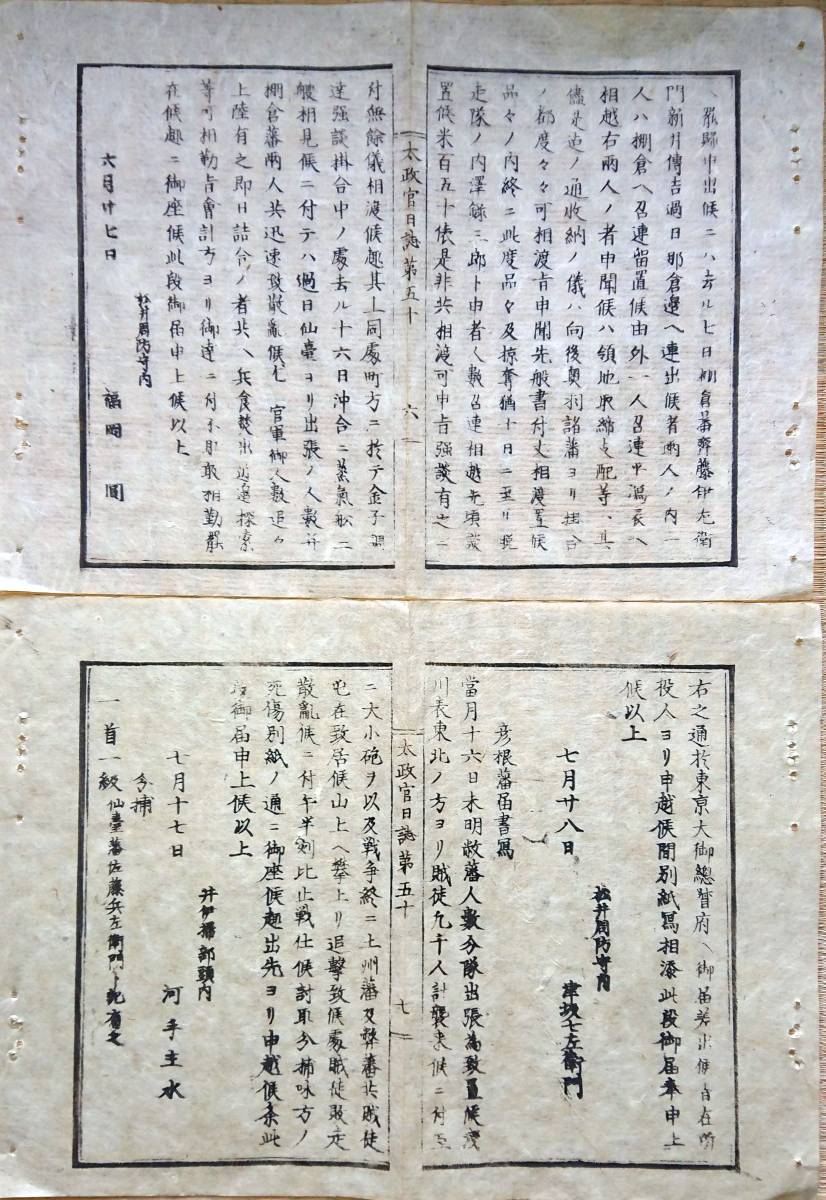 罷歸申出候ニハ去ル七日棚倉藩齊藤伊左衛
門新井傳吉過日那倉邊ヘ連出候者兩人ノ內一
人ハ棚倉ヘ召連留置候由外一人召連
相越右兩人ノ者申聞候ハ領地取締支配等ハ其
儘是迄ノ通收納ノ儀ハ向後奥羽諸藩ヨリ掛合
ノ都度々々可相渡旨申聞先般書付丈相渡置候
品々ノ內終ニ此度品々及掠奪猶十日ニ至リ
走隊ノ內澤錄三郎ト申者人數召連相越先頃談
置候米百五十俵是非共相渡可申旨强談有之ニ
太政官日誌第五十
六
付無餘儀相渡候趣其上同處町方ニ於テ金子調
達强談掛合中ノ處去ル十六日沖合ニ蒸氣船二
艘相見候ニ付テハ過日仙臺ヨリ出張ノ人數并
棚倉藩兩人共迅速致散亂候處官軍御人數追々
上陸有之即日詰合ノ者共ヘ兵食焚出近邊探索
等可相勤旨會計方ヨリ御達ニ付不取敢相勤罷
在候趣ニ御座候此段御届申上候以上
六月廿七日
松井周防守內
福岡圓
右之通於東京大御總督府ヘ御届差出候旨在所
役人ヨリ申越候間別紙寫相添此段御届奉申上
候以上
七月廿八日
松井周防守內
津坂七左衛門
彦根藩届書寫
當月十六日未明敝藩人數分隊出張為致置候
川表東北ノ方ヨリ賊徒凡千人計襲來候ニ付互
ニ大小砲ヲ以及戰爭終ニ上州藩及弊藩共賊徒
屯在致居候山上ヘ攀上リ追擊致候處賊徒敗走
散亂候ニ付午半刻比止戰仕候討取分捕味方ノ
死傷別紙ノ通ニ御座候趣出先ヨリ申越候条此
段御届申上候以上
七月十七日
井伊掃部頭內
河手主水
分捕
一首一級仙臺藩佐藤兵左衛門ト記有之
太政官日誌第五十
七